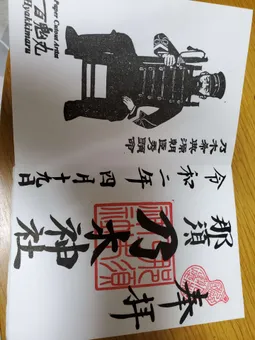 Paper Cutout Artist
Hyakkimaru
百鬼丸
乃木希典
奉拝
那須
乃木神社
令和二年四月十九日